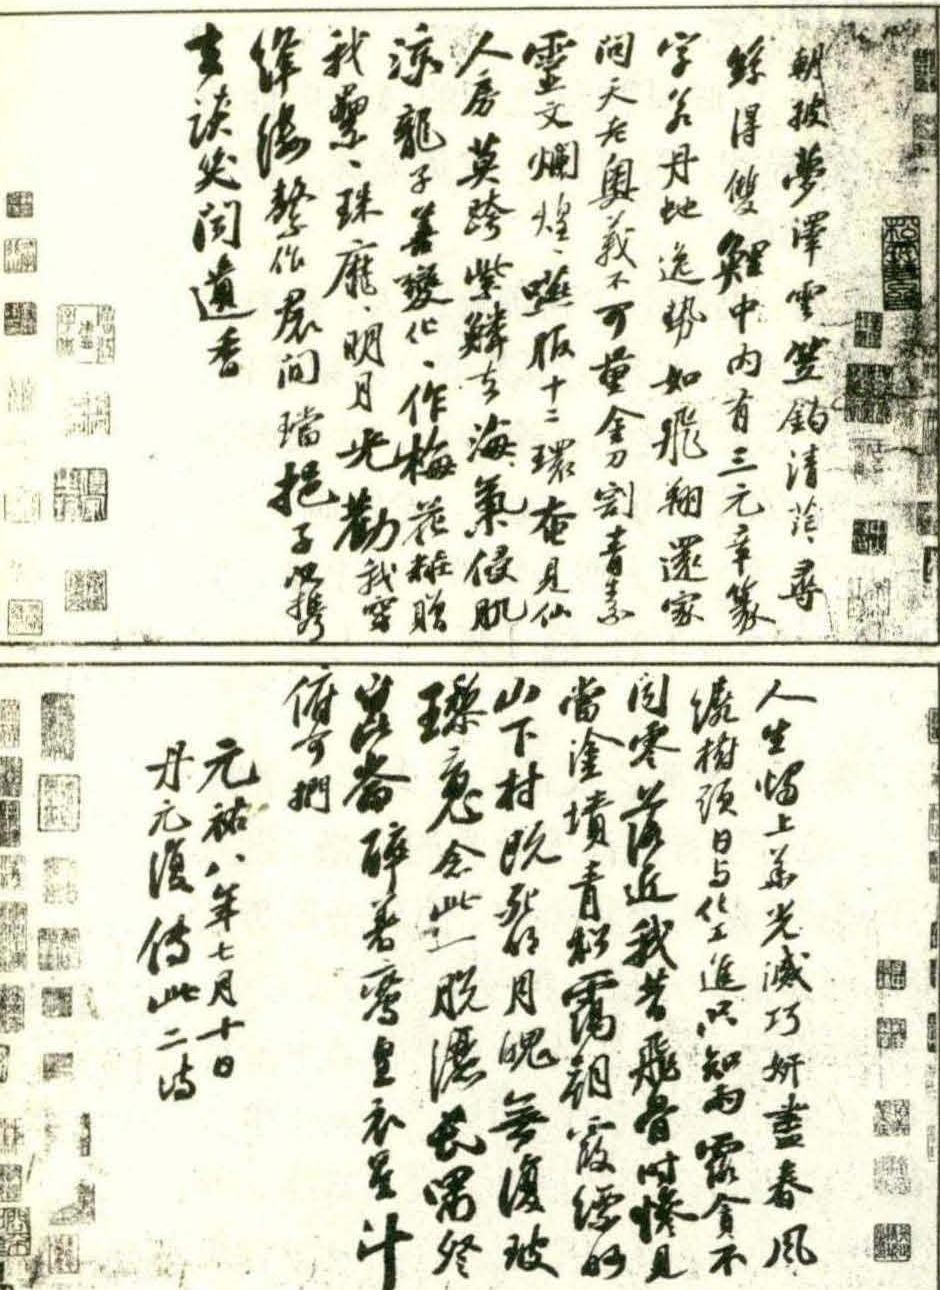 朝披夢澤雲笠釣清茫〻尋
絲得雙鯉中內有三元章篆
字若丹虵逸勢如飛翔還家
問天老奧義不可量金刀割青素
靈文爛煌〻嚥服十二環奄見仙
人房莫跨紫鱗去海氣侵肌
涼龍子善變化〻作梅花粧贈
我纍〻珠靡〻明月光勸我穿
絳縷繫作裙間璫挹子以攜
去談笑聞遺香
人生燭上華光滅巧妍盡春風
繞樹頭日与化工進只知雨露貪不
聞零落近我昔飛骨時慘見
當塗墳青松靄朝霞縹眇
山下村既死明月魄無復玻
瓈魂念此一脫灑長嘯登
崑崙醉著鸞皇衣星斗
俯可捫
元祐八年七月十日
丹元復傳此二詩